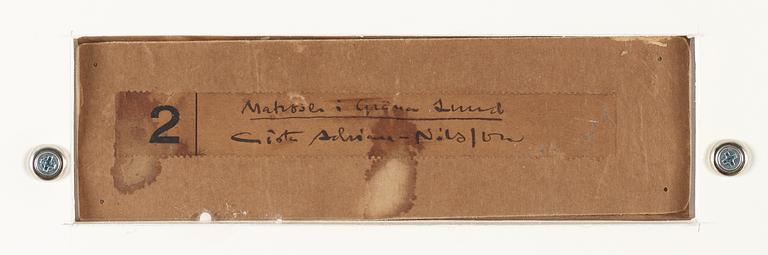 2
Matroser i Gröna Lund
Gösta Adrian-Nilsson